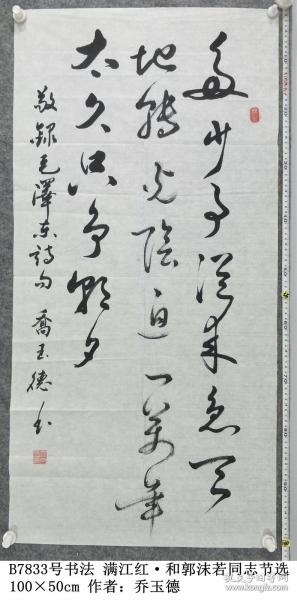 多少事從来急天
地轉光陰迫一萬年
太久只争朝夕
敬録毛澤東詩句 喬玉德书
B7833号书法 满江红·和郭沫若同志节选
100×50cm 作者：乔玉德